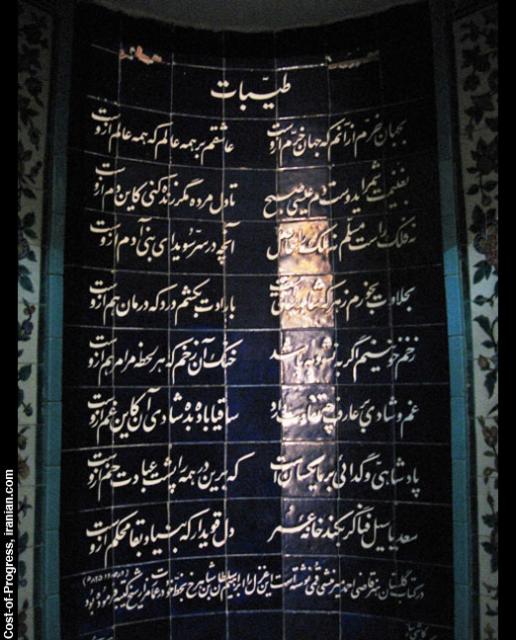 طیّبات
بجهان خرّم از آنم که جهان خرّم ازوست عاشقم بر همه عالم که همه عالم ازوست
بغنیمت شمر ای دوست دم عیسی صبح تا دل مرده مگر زنده کنی کاین دم ازوست
نه فلک راست مسلّم نه ملک را حاصل آنچه در سرّ سویدای بنی آدم ازوست
بحلاوت بخورم زهر که شاهد ساقیست بارادت بکشم درد که درمان هم ازوست
زخم خونینم اگر به نشود به باشد خنک آن زخم که هر لحظه مرا مرهم ازوست
غم و شادی بر عارف چه تفاوت دارد ساقیا باده بده شادی آن کاین غم ازوست
پادشاهی و گدائی بر ما یکسان است که برین در همه را پشت عبادت خم ازوست
سعدیا سیل فنا گر بکند خانه عمر دل قوی دار که بنیاد بقا محکم ازوست
در کتاب گلستان هنر قاضی احمد میر منشی قمی نوشته است این غزل را ابراهیم سلطان بن شاهرخ بخط خود در عمارت مزار شیخ کتیبه فرموده بود
Cost-of-Progress, iranian.com